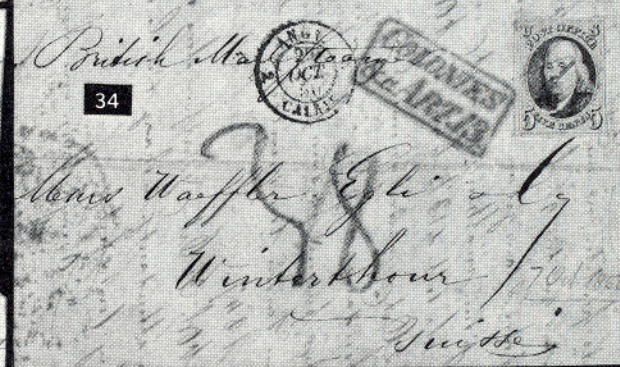 British Mail
ANGL.
2
OCT.
50
CALAIS
COLONIES
&c. ART. 13.
POST OFFICE
FIVE CENTS
5 5
34
38
Messrs Waeffler Egli & Cy
Winterthour
Suisse